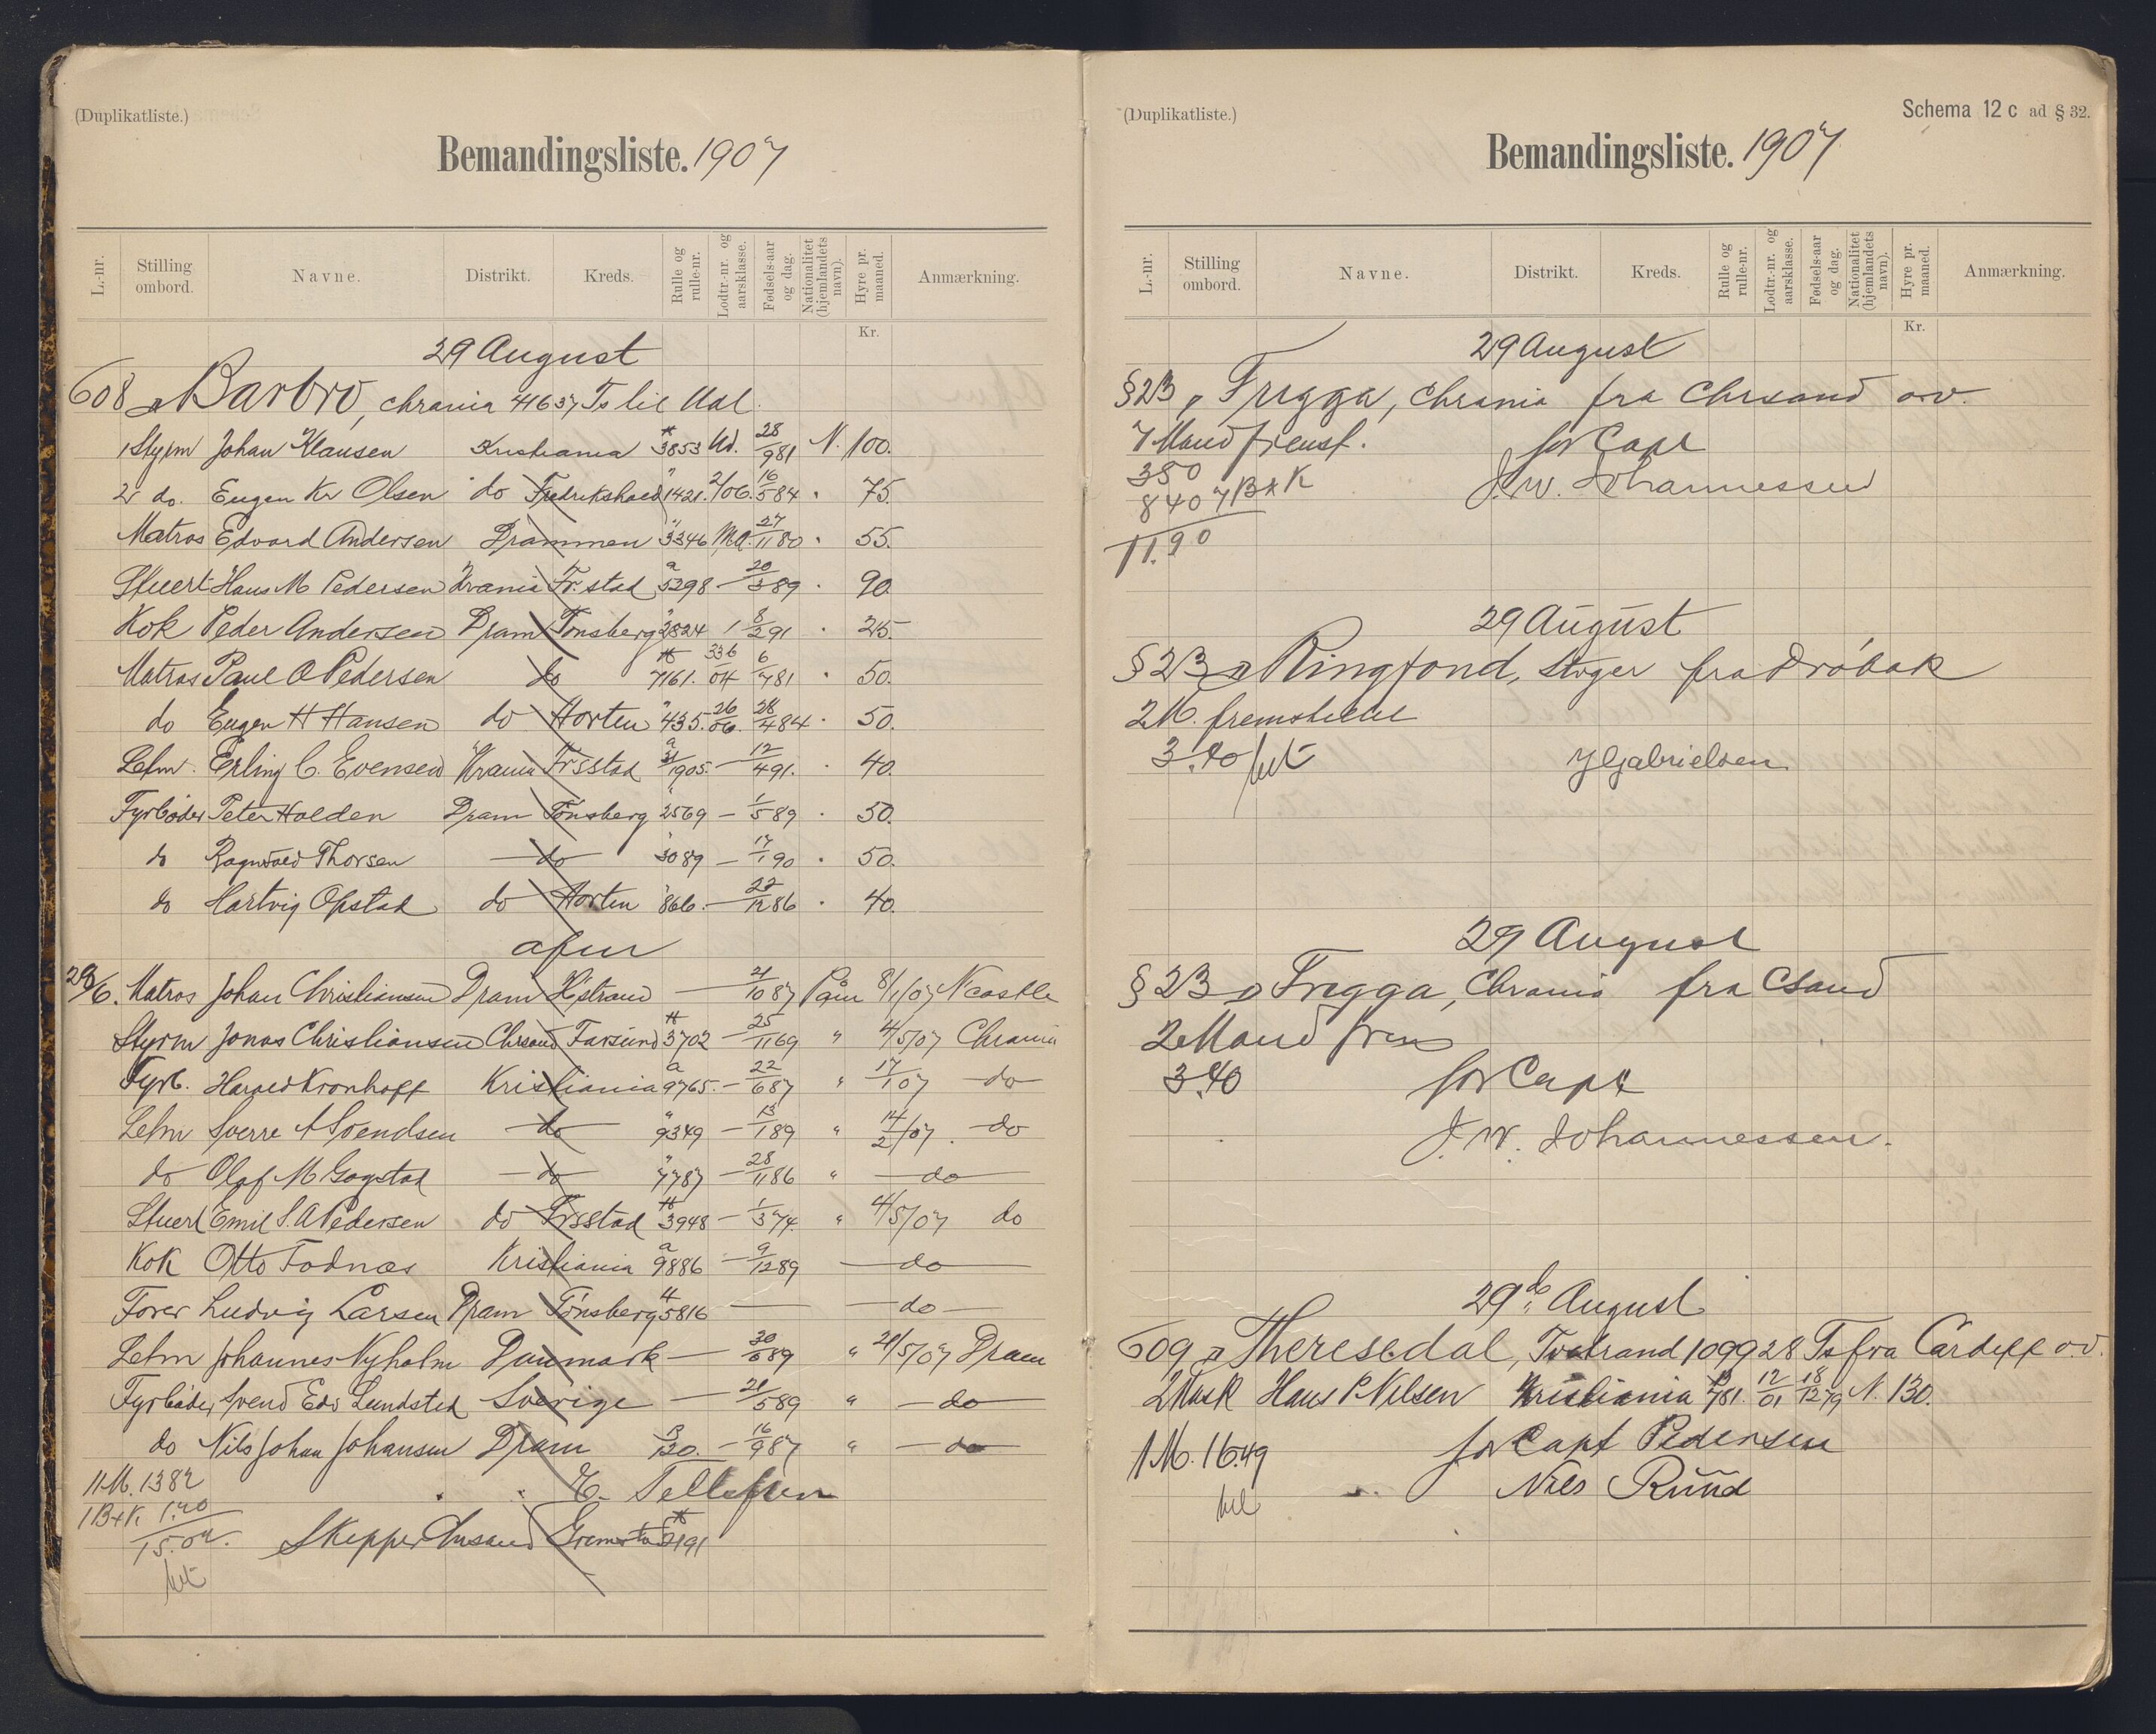 (Duplikatliste.)
Bemandingsliste. 1907
L.-nr. Stilling ombord. Navne. Distrikt. Kreds. Rulle og rulle-nr. Lodtr.-nr. og aarsklasse. Fødsels-aar og dag. Nationalitet (hjemlandets navn). Hyre pr. maaned. Anmærkning.
Kr.
29 August
608 Barbro, Chrania 41637 Ts til Udl.
1 Styrm Johan Klausen Kristiania 3853 Ud. 28/9 81 N. 100.
2 do. Eugen Kr Olsen do Fredrikshald 1421. 2/06. 16/5 84 " 75.
Matros Edvard Andersen Drammen 3346 MA. 27/11 80 " 55.
Stuert Hans M Pedersen Krania Fr.stad a 5298 — 20/3 89 " 90.
Kok Peder Andersen Dram Tønsberg 2824 1 8/2 91 " 25.
Matros Paul A Pedersen do 7161. 336/04 6/7 81 " 50.
do Eugen H Hansen do Horten 435. 26/06. 28/4 84 " 50.
Letm. Erling C. Evensen Krania Frsstad a 1905. — 12/4 91. " 40.
Fyrbøder Peter Holden Dram Tønsberg 2569 — 1/5 89 " 50.
do Ragnvald Thorsen — do — 3089 — 17/1 90 " 50.
do Hartvig Opstad do Horten 866. — 22/12 86 " 40.
afm
28/6. Matros Johan Christiansen Dram H'strand — 21/10 87 Paam 8/1/07 Ncastle
Styrm Jonas Christiansen Chrsand Farsund 3702 — 25/11 69 " 4/5/07 Chrania
Fyrb. Harald Kronhoff Kristiania a 9765. — 22/6 87 " 17/1 07 — do —
Letm Sverre A Svendsen — do — " 9349 — 13/1 89 " 14/2/07. do
do Olaf M Gogstad — do — " 7787 — 28/11 86 " — do —
Stuert Emil S. A Pedersen do Frsstad 3948 — 1/3 74. " 4/5/07 do
Kok Otto Fodnæs Kristiania a 9886 — 9/12 89 — do —
Forer Ludvig Larsen Dram Tønsberg 5816 — — do —
Letm Johannes Nyholm Danmark — 30/6 89 " 21/5/07 Dram
Fyrbøder Svend Edv Lundsted Sverige — 21/5 89 " — do —
do Nils Johan Johansen Dram 120. — 16/9 87 " — do —
11 M. 13 82
1 B+K 1.20
15.02.
E. Tellefsen
Skipper Chrsand Grimstad 2191
(Duplikatliste.)
Schema 12 c ad § 32.
Bemandingsliste. 1907
L.-nr. Stilling ombord. Navne. Distrikt. Kreds. Rulle og rulle-nr. Lodtr.-nr. og aarsklasse. Fødsels-aar og dag. Nationalitet (hjemlandets navn). Hyre pr. maaned. Anmærkning.
Kr.
29 August
§ 2B " Frigga, Chrania fra Chrsand o.v.
7 Mand fremst. for Capt
350
840 7 B+K
J. W. Johannessen
11.90
29 August
§ 2B Ringfond, Stvger fra Drøbak
2 M. fremstillet
3.40
J Gabrielsen
29 August
§ 2B Frigga, Chrania fra Csand
2 Mand frem
3.40 for Capt
J. W. Johannessen.
29 de August
609 Theresedal, Tvedstrand 1099 28 Ts fra Cardiff o.v.
2 Mask Hans P Nilsen Kristiania 781. 12/01 18/12 79 N. 130.
1 M. 16.49 for Capt Pedersen
Nils Rund